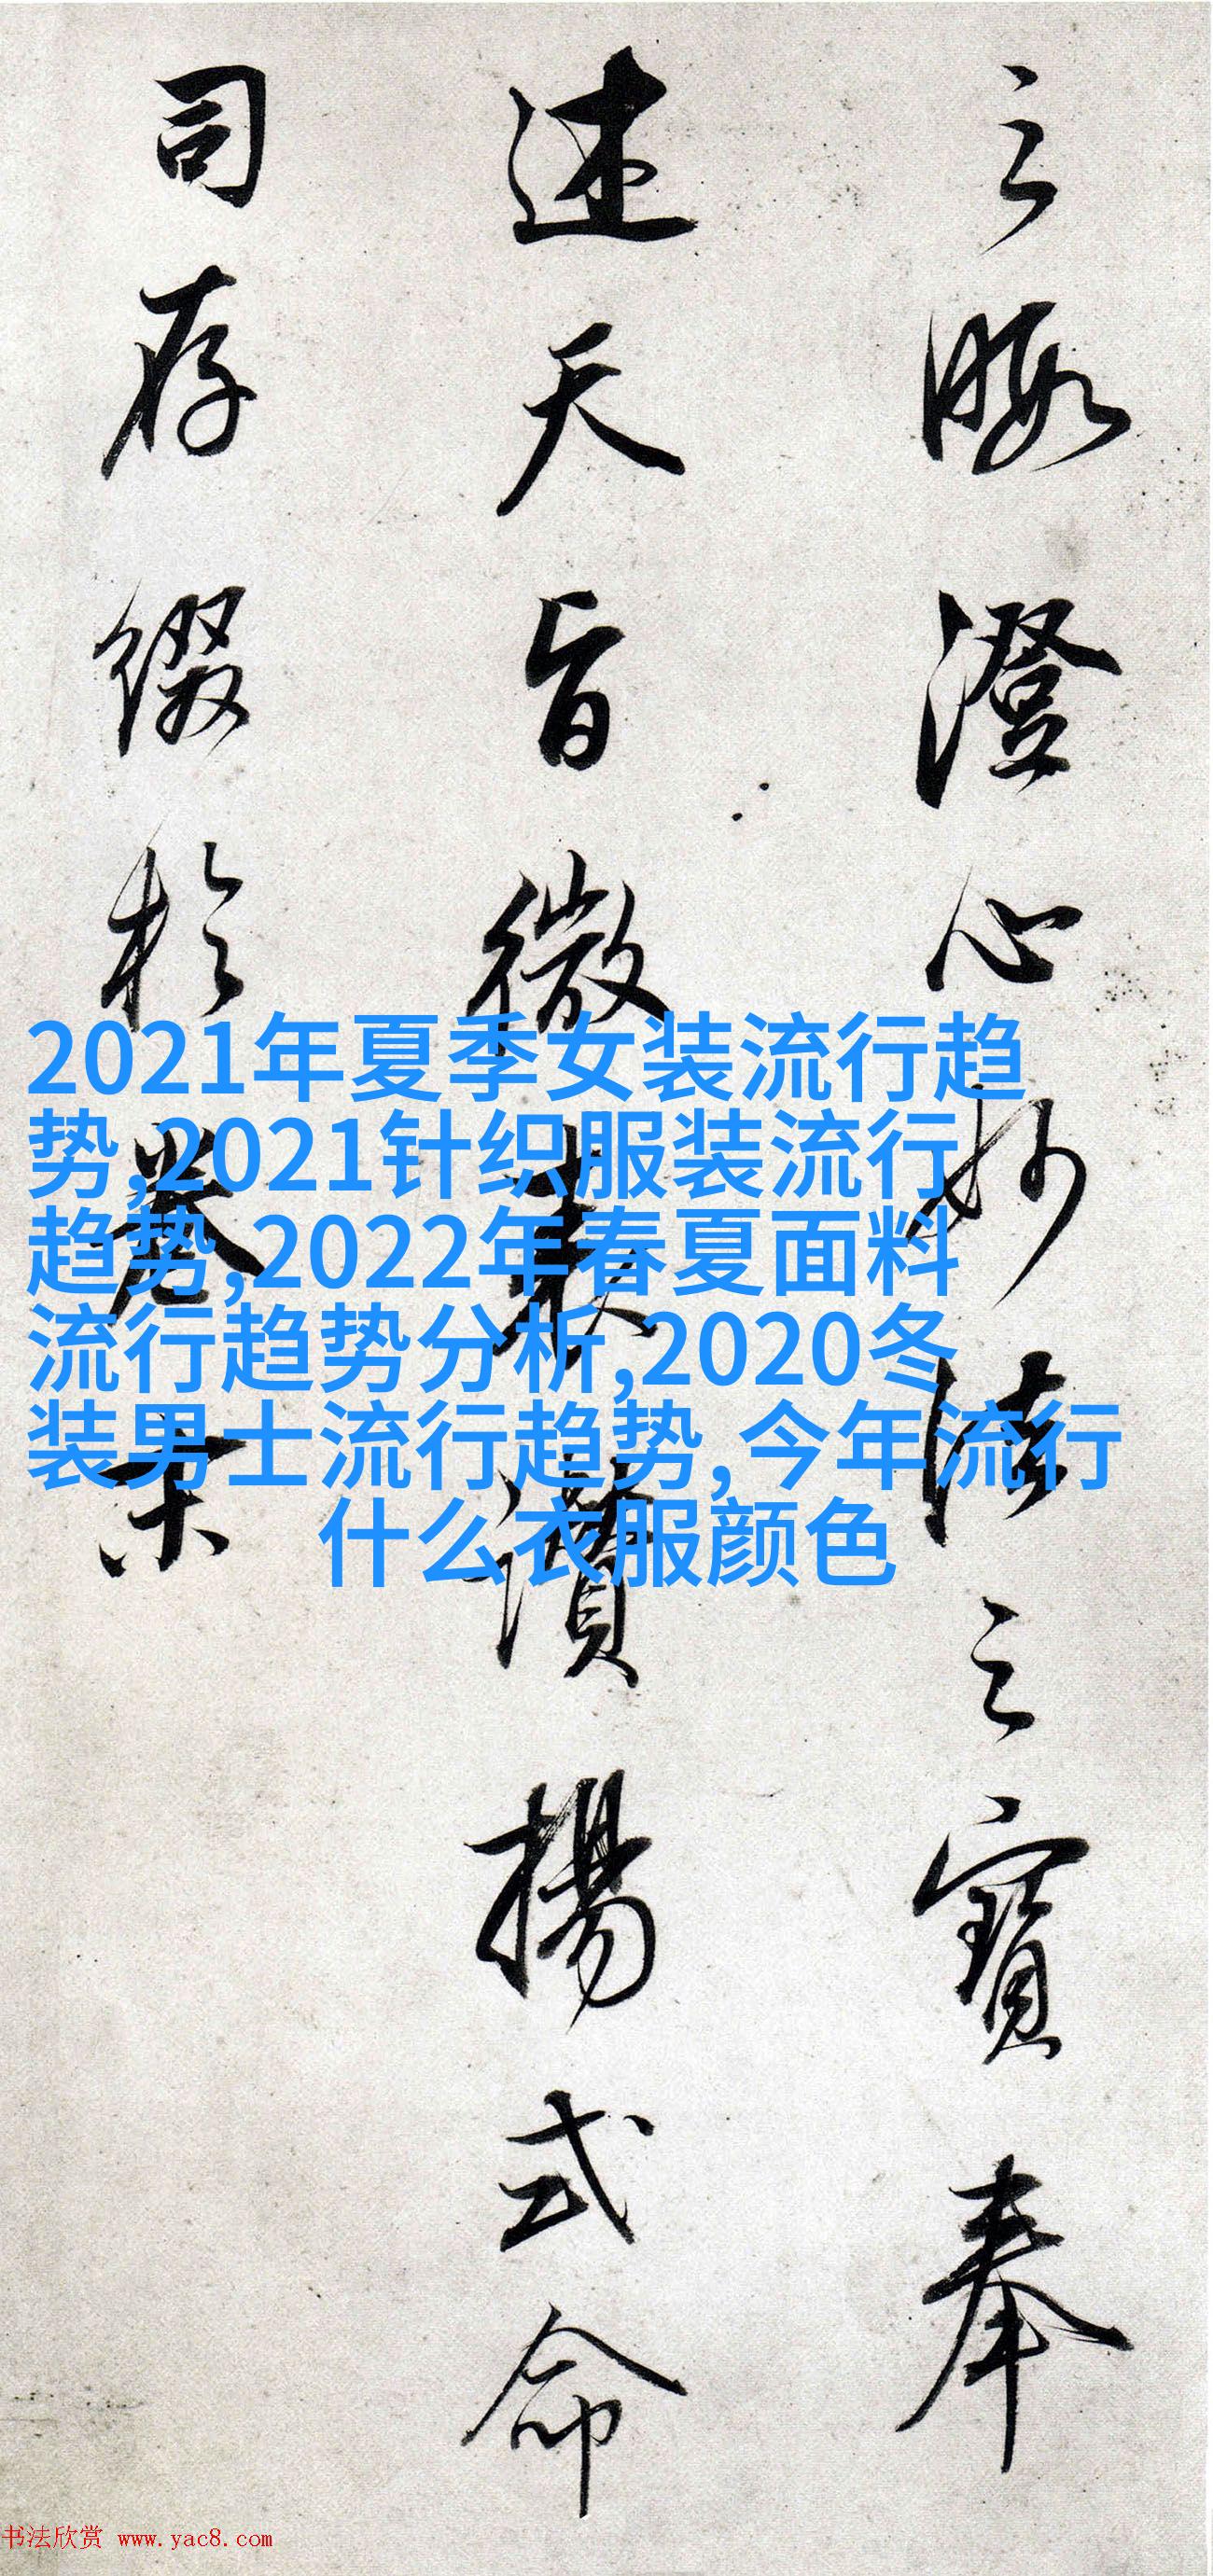 之暇澄心妙法之寶奉
述天旨微表讚揚式命
司存綴於卷末
2021年夏季女装流行趋
势,2021针织服装流行
趋势,2022年春夏面料
流行趋势分析,2020冬
装男士流行趋势,今年流行
什么衣服颜色
书法欣赏 www.yac8.com